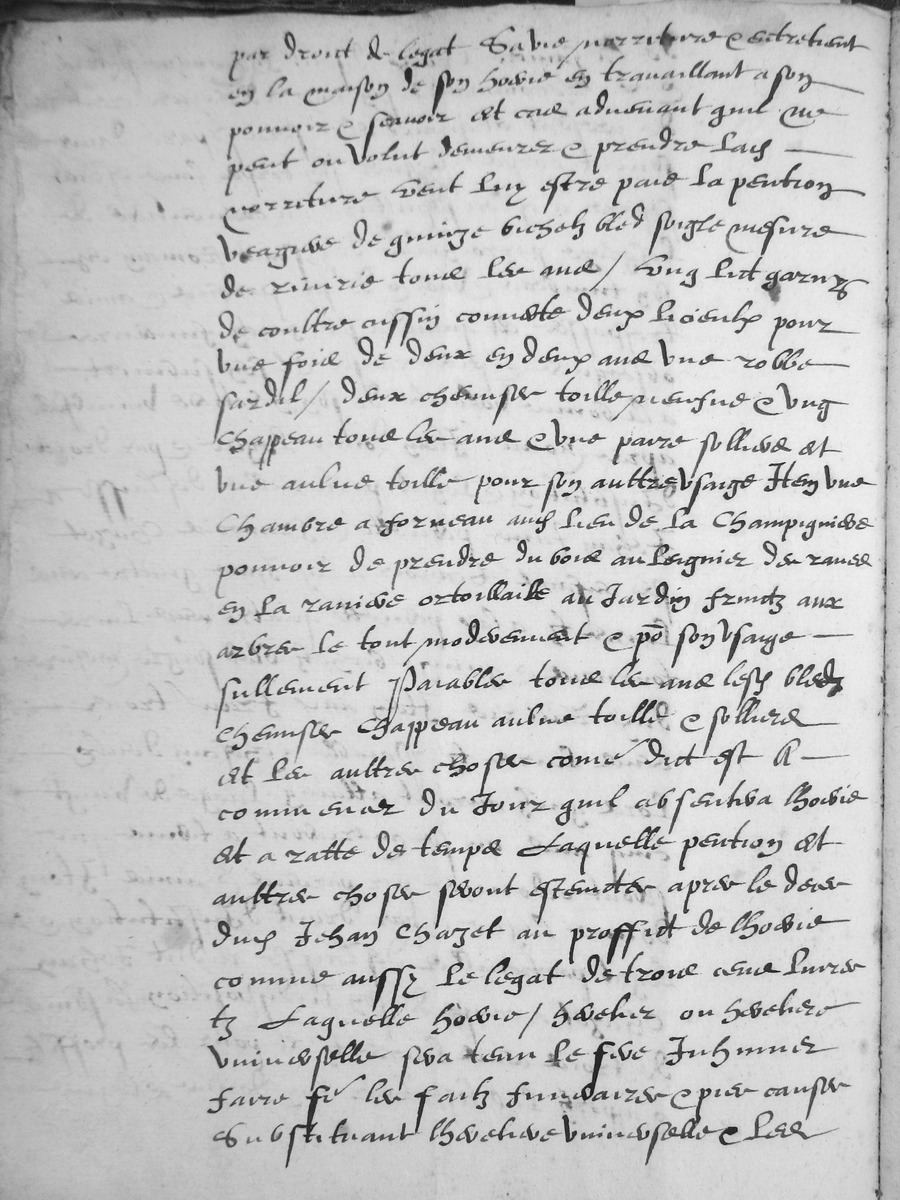 par droict de legat sa vie norriture & entretient
en la maison de son hoirie en travaillant a son
pouvoir & scavoir et cas advenant quil ne
peut ou volut demeurer & prendre lad
norriture veut luy estre paie la pention
viagiere de quinze bichetz bled soigle mesure
de riverie tous les ans / ung lict garny
de coultre cussin couverte deux licieulx pour
une fois de deux en deux ans une robbe
sardil / deux chemises toille neufve & ung
chappeau tous les ans & une paire solliers et
une aulne toille pour son aultre usaige Item une
chambre a forneau aud lieu de la Champigniere
pouvoir de prendre du bois au leignier des raves
en la raviere ortoillaile au Jardin fruictz aux
arbres le tout moderement & po son usaige
sullement Paiables tous les ans lesd bledz
chemises chappeau aulne toille & solliers
et les aultres choses come dict est A
commencer du Jour quil absentera lhoirie
et a ratte de temps Laquelle pention et
aultres choses seront estemctes apres le deces
dud Jehan Chazet au proffict de lhoirie
comme aussy le legat de trois cens livres
tz Laquelle hoirie / heretier ou heretiere
universelle sera tenu le fere Inhumer
faire fe les faitz funeraires & pies causes
Substituant lheretiere universelle & les